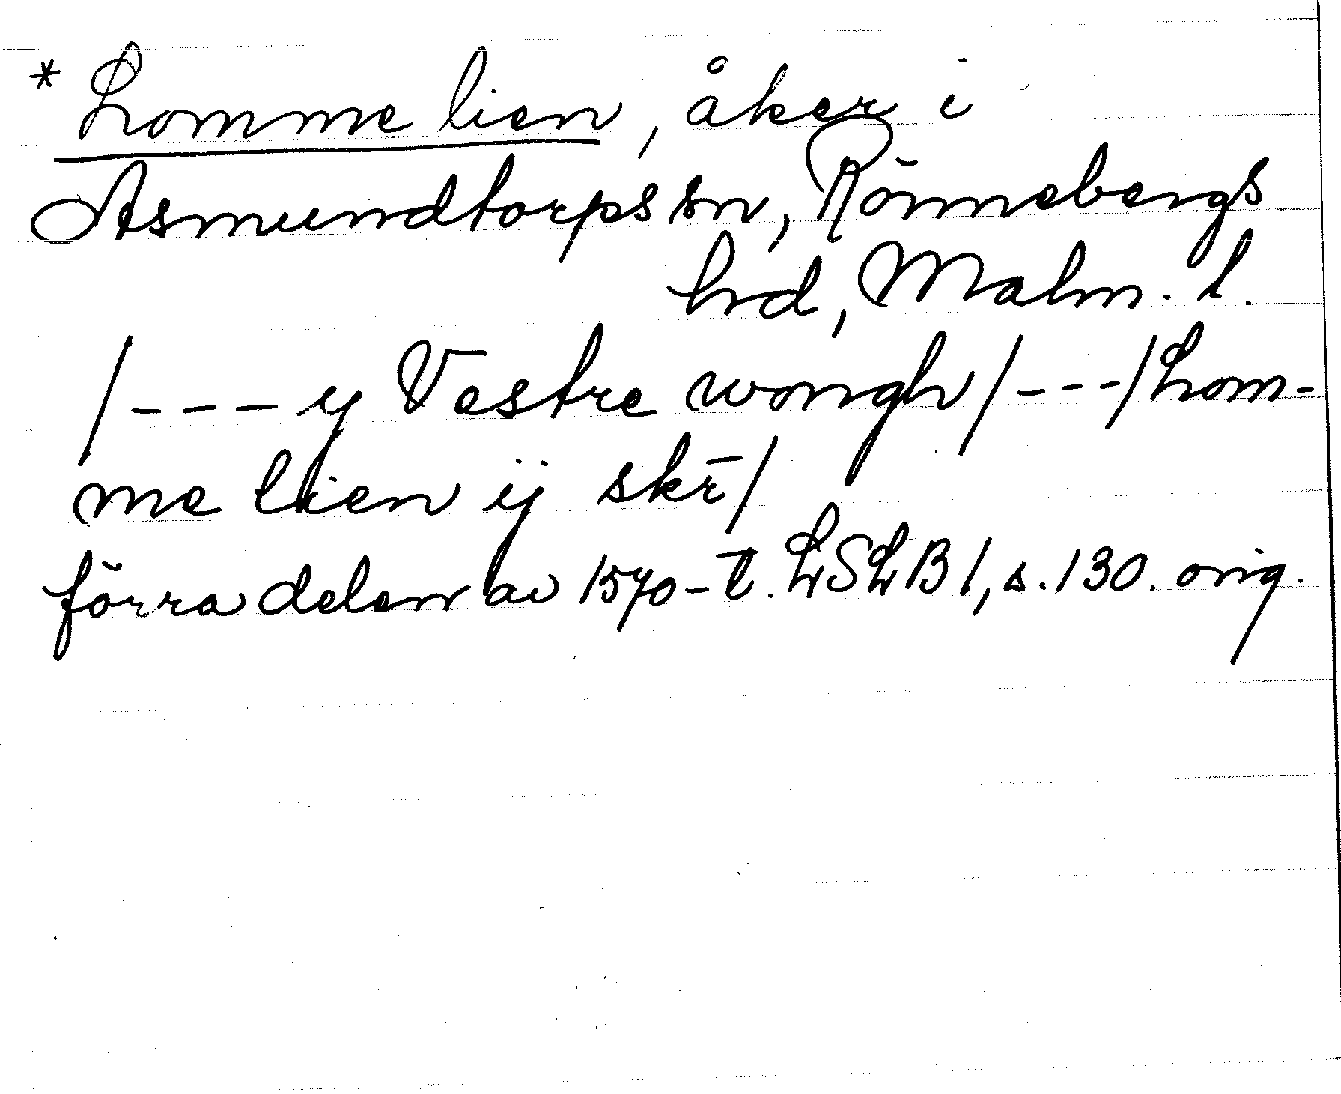 * Lomme lien, åker i
Asmundtorps sn, Rönnebergs
hd, Malm. l.
/---y Vestre wongh/---/Lom-
me lien ij skr̄/
förra delen av 1570-t. LSLB 1, s. 130. orig.